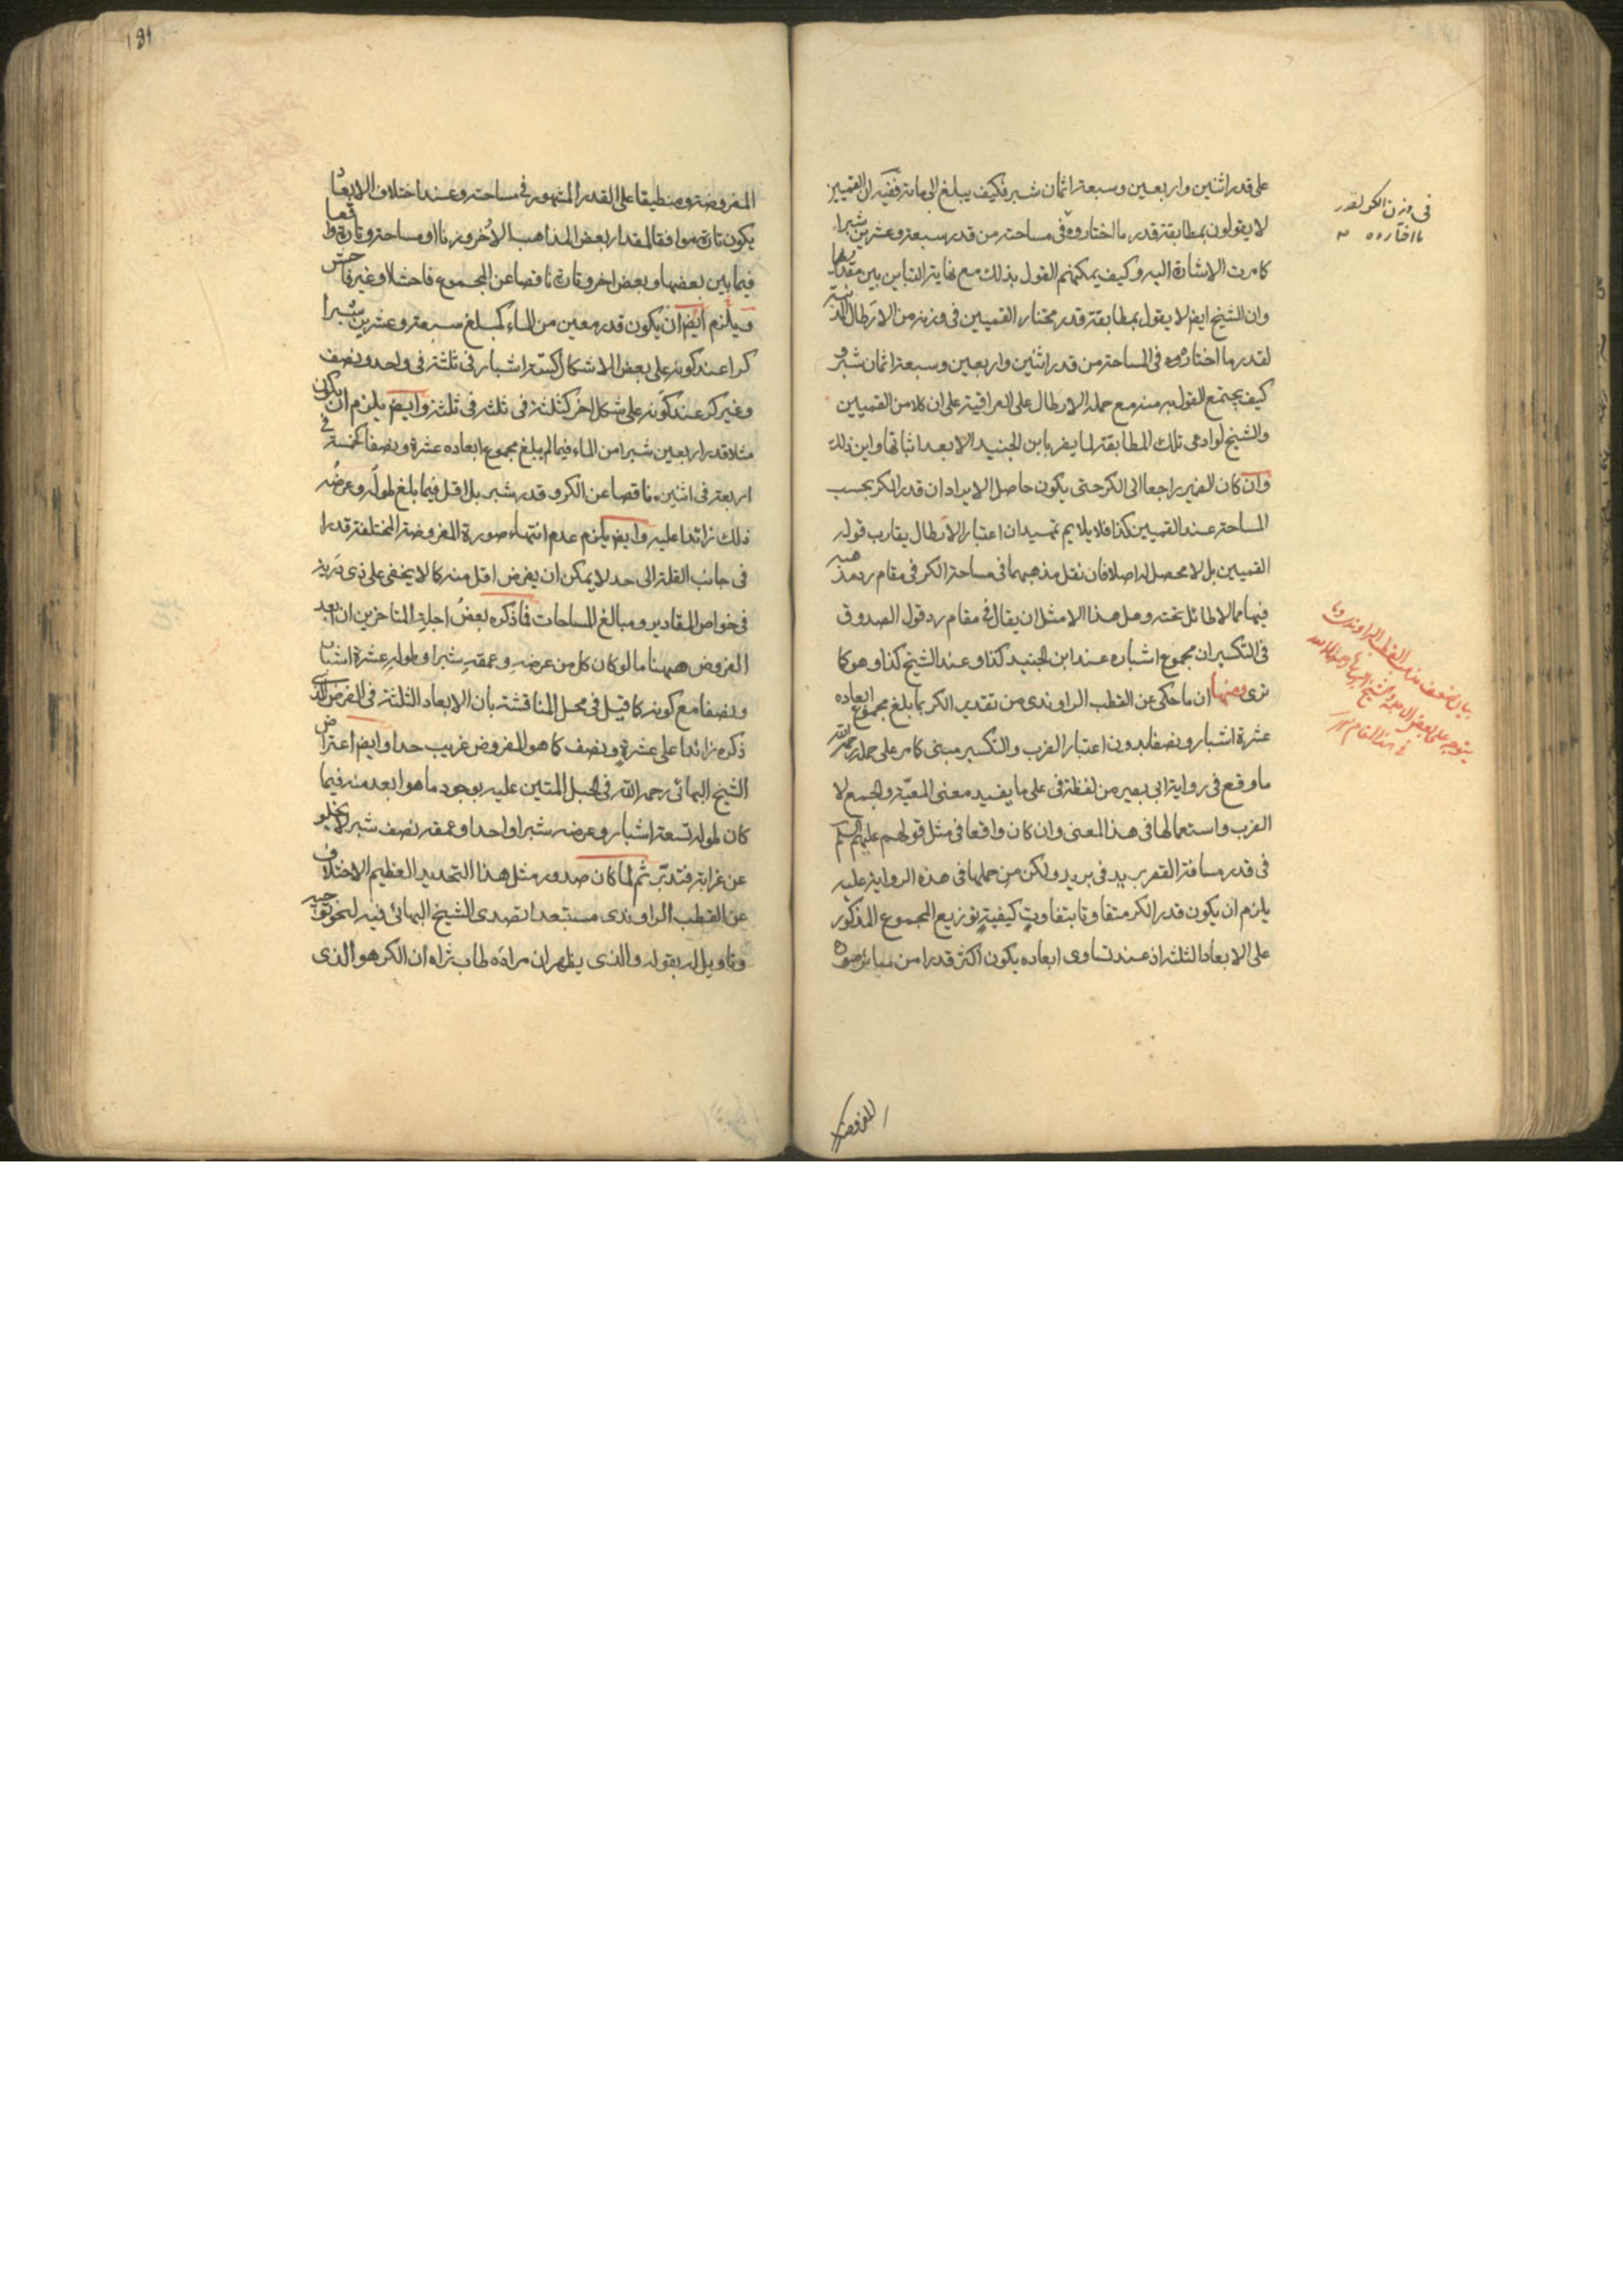 على قدر اثنين واربعين وسبعة اثمان شبر فكيف يبلغ الى مائة ففيه ان القميين
لا يقولون بمطابقة قدر ما اختاروه في مساحته من قدر سبعة وعشرين شبرا
كما مرت الاشارة اليه وكيف يمكنهم القول بذلك مع غاية التباين بين مقداريهما
وان الشيخ ايضا لا يقول بمطابقة قدر مختار القميين في وزنه من الارطال
لقدر ما اختاروه في المساحة من قدر اثنين واربعين وسبعة اثمان شبر و
كيف يجتمع القول به منه مع حمله الارطال على العراقية على ان كلا من القميين
والشيخ لو ادعى تلك المطابقة لما يضر بابن الجنيد الا بعد اثباتها واين ذلك
وان كان الضمير راجعا الى الكر حتى يكون حاصل الايراد ان قدر الكر بحسب
المساحة عند القميين كذا فلا يلايم تمهيد ان اعتبار الارطال يقارب قول
القميين بل لا محصل له اصلا فان نقل مذهبهما في مساحة الكر في مقام رد مذهبه
فيها مما لا طائل تحته وهل هذا الا مثل ان يقال في مقام رد قول الصدوق
في التكسير ان مجموع اشباره عند ابن الجنيد كذا وعند الشيخ كذا وهو كما
ترى ومنها ان ما حكى عن القطب الراوندي من تقدير الكر بما بلغ مجموع ابعاده
عشرة اشبار ونصفا بدون اعتبار الضرب والتكسير مبنى كما مر على حمله رحمه الله
ما وقع في رواية ابي بصير من لفظة في على ما يفيد معنى المعية والجمع لا
الضرب واستعمالها في هذا المعنى وان كان واقعا في مثل قولهم عليهم السلم
في قدر مسافة القصر بريد في بريد ولكن من حملها في هذه الرواية عليه
يلزم ان يكون قدر الكر متفاوتا بتفاوت كيفية توزيع المجموع المذكور
على الابعاد الثلثة اذ عند تساوى ابعاده يكون اكثر قدرا من سائر صوره
في وزن الكر لقدر
ما اختاروه
بيان ضعف مذهب القطب الراوندي وما
يتوجه على بعض الاجلة والشيخ البهائي رحمهما الله
في هذا المقام
المفروضة
181
المفروضة ومنطبقا على القدر المشهور في مساحته وعند اختلاف الابعاد
يكون تارة موافقا لمقدار بعض المذاهب الاخر وزنا او مساحة وتارة واقعا
فيما بين بعضها وبعض اخر وتارة ناقصا عن المجموع فاحشا او غير فاحش
ويلزم ايضا ان يكون قدر معين من الماء كمبلغ سبعة وعشرين شبرا
كرا عند كونه على بعض الاشكال كستة اشبار في ثلثة في واحد ونصف
وغير كر عند كونه على شكل اخر كثلثة في ثلثة في ثلثة وايضا يلزم ان يكون
مثلا قدر اربعين شبرا من الماء فيما لم يبلغ مجموع ابعاده عشرة ونصفا كخمسة في
اربعة في اثنين ناقصا عن الكر وقدر شبر بل اقل فيما بلغ طوله وعرضه
ذلك زائدا عليه وايضا يلزم عدم انتهاء صورة المفروضة المختلفة قدرا
في جانب القلة الى حد لا يمكن ان يفرض اقل منه كما لا يخفى على ذى دربة
في خواص المقادير ومبالغ المساحات فما ذكره بعض اجلة المتاخرين ان ابعد
الفروض ههنا ما لو كان كل من عرضه وعمقه شبرا وطوله عشرة اشبار
ونصفا مع كونه كما قيل في محل المناقشة بان الابعاد الثلثة في الفرض الذي
ذكره زائدا على عشرة ونصف كما هو المفروض غريب جدا وايضا اعتراض
الشيخ البهائي رحمه الله في الحبل المتين عليه بوجود ما هو ابعد منه فيما
كان طوله تسعة اشبار وعرضه شبرا واحدا وعمقه نصف شبر لا يخلو
عن غرابة فتدبر ثم لما كان صدور مثل هذا التحديد العظيم الاختلاف
عن القطب الراوندي مستبعدا تصدى الشيخ البهائي فيه لنحو توجيه
وتاويل له بقوله والذى يظهر ان مراده طاب ثراه ان الكر هو الذى